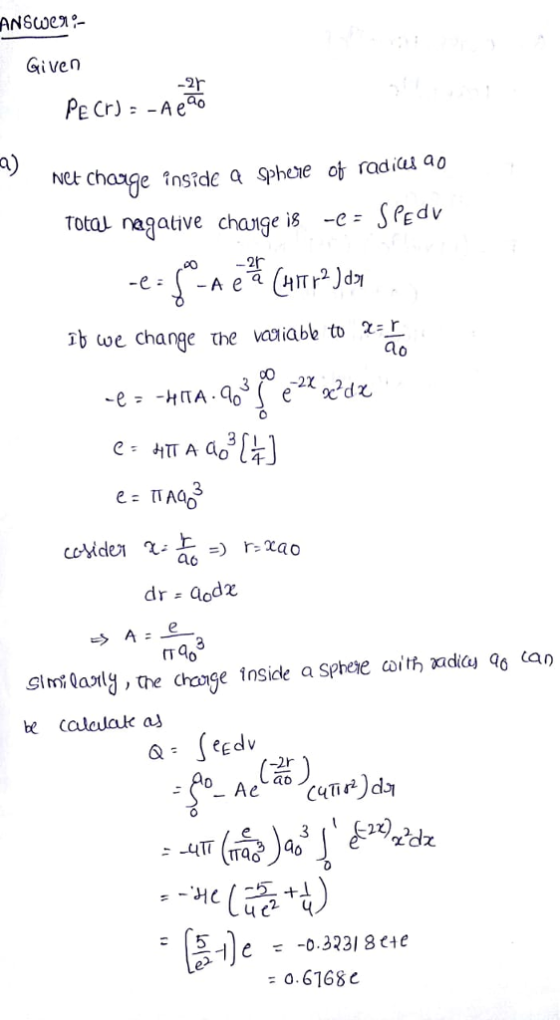 ANSWER:-
Given
PE(r) = -A e^(-2r/a0)
a) Net charge inside a sphere of radius a0
Total nagative charge is -e = ∫PE dv
-e = ∫₀^∞ -A e^(-2r/a) (4πr²)dr
If we change the variable to x = r/a0
-e = -4πA·a0³ ∫₀^∞ e^(-2x) x²dx
e = 4π A a0³ [1/4]
e = πAa0³
cosider x = r/a0 => r = xa0
dr = a0dx
=> A = e/πa0³
Similarly, the charge inside a sphere with radius a0 can
be calculate as
Q = ∫eE dv
= ∫₀^a0 -Ae^(-2r/a0) (4πr²)dr
= -4π (e/πa0³) a0³ ∫₀^1 e^(-2x) x²dx
= -4e (-5/4e² + 1/4)
= [5/e² -1]e = -0.32318e+e
= 0.6768e